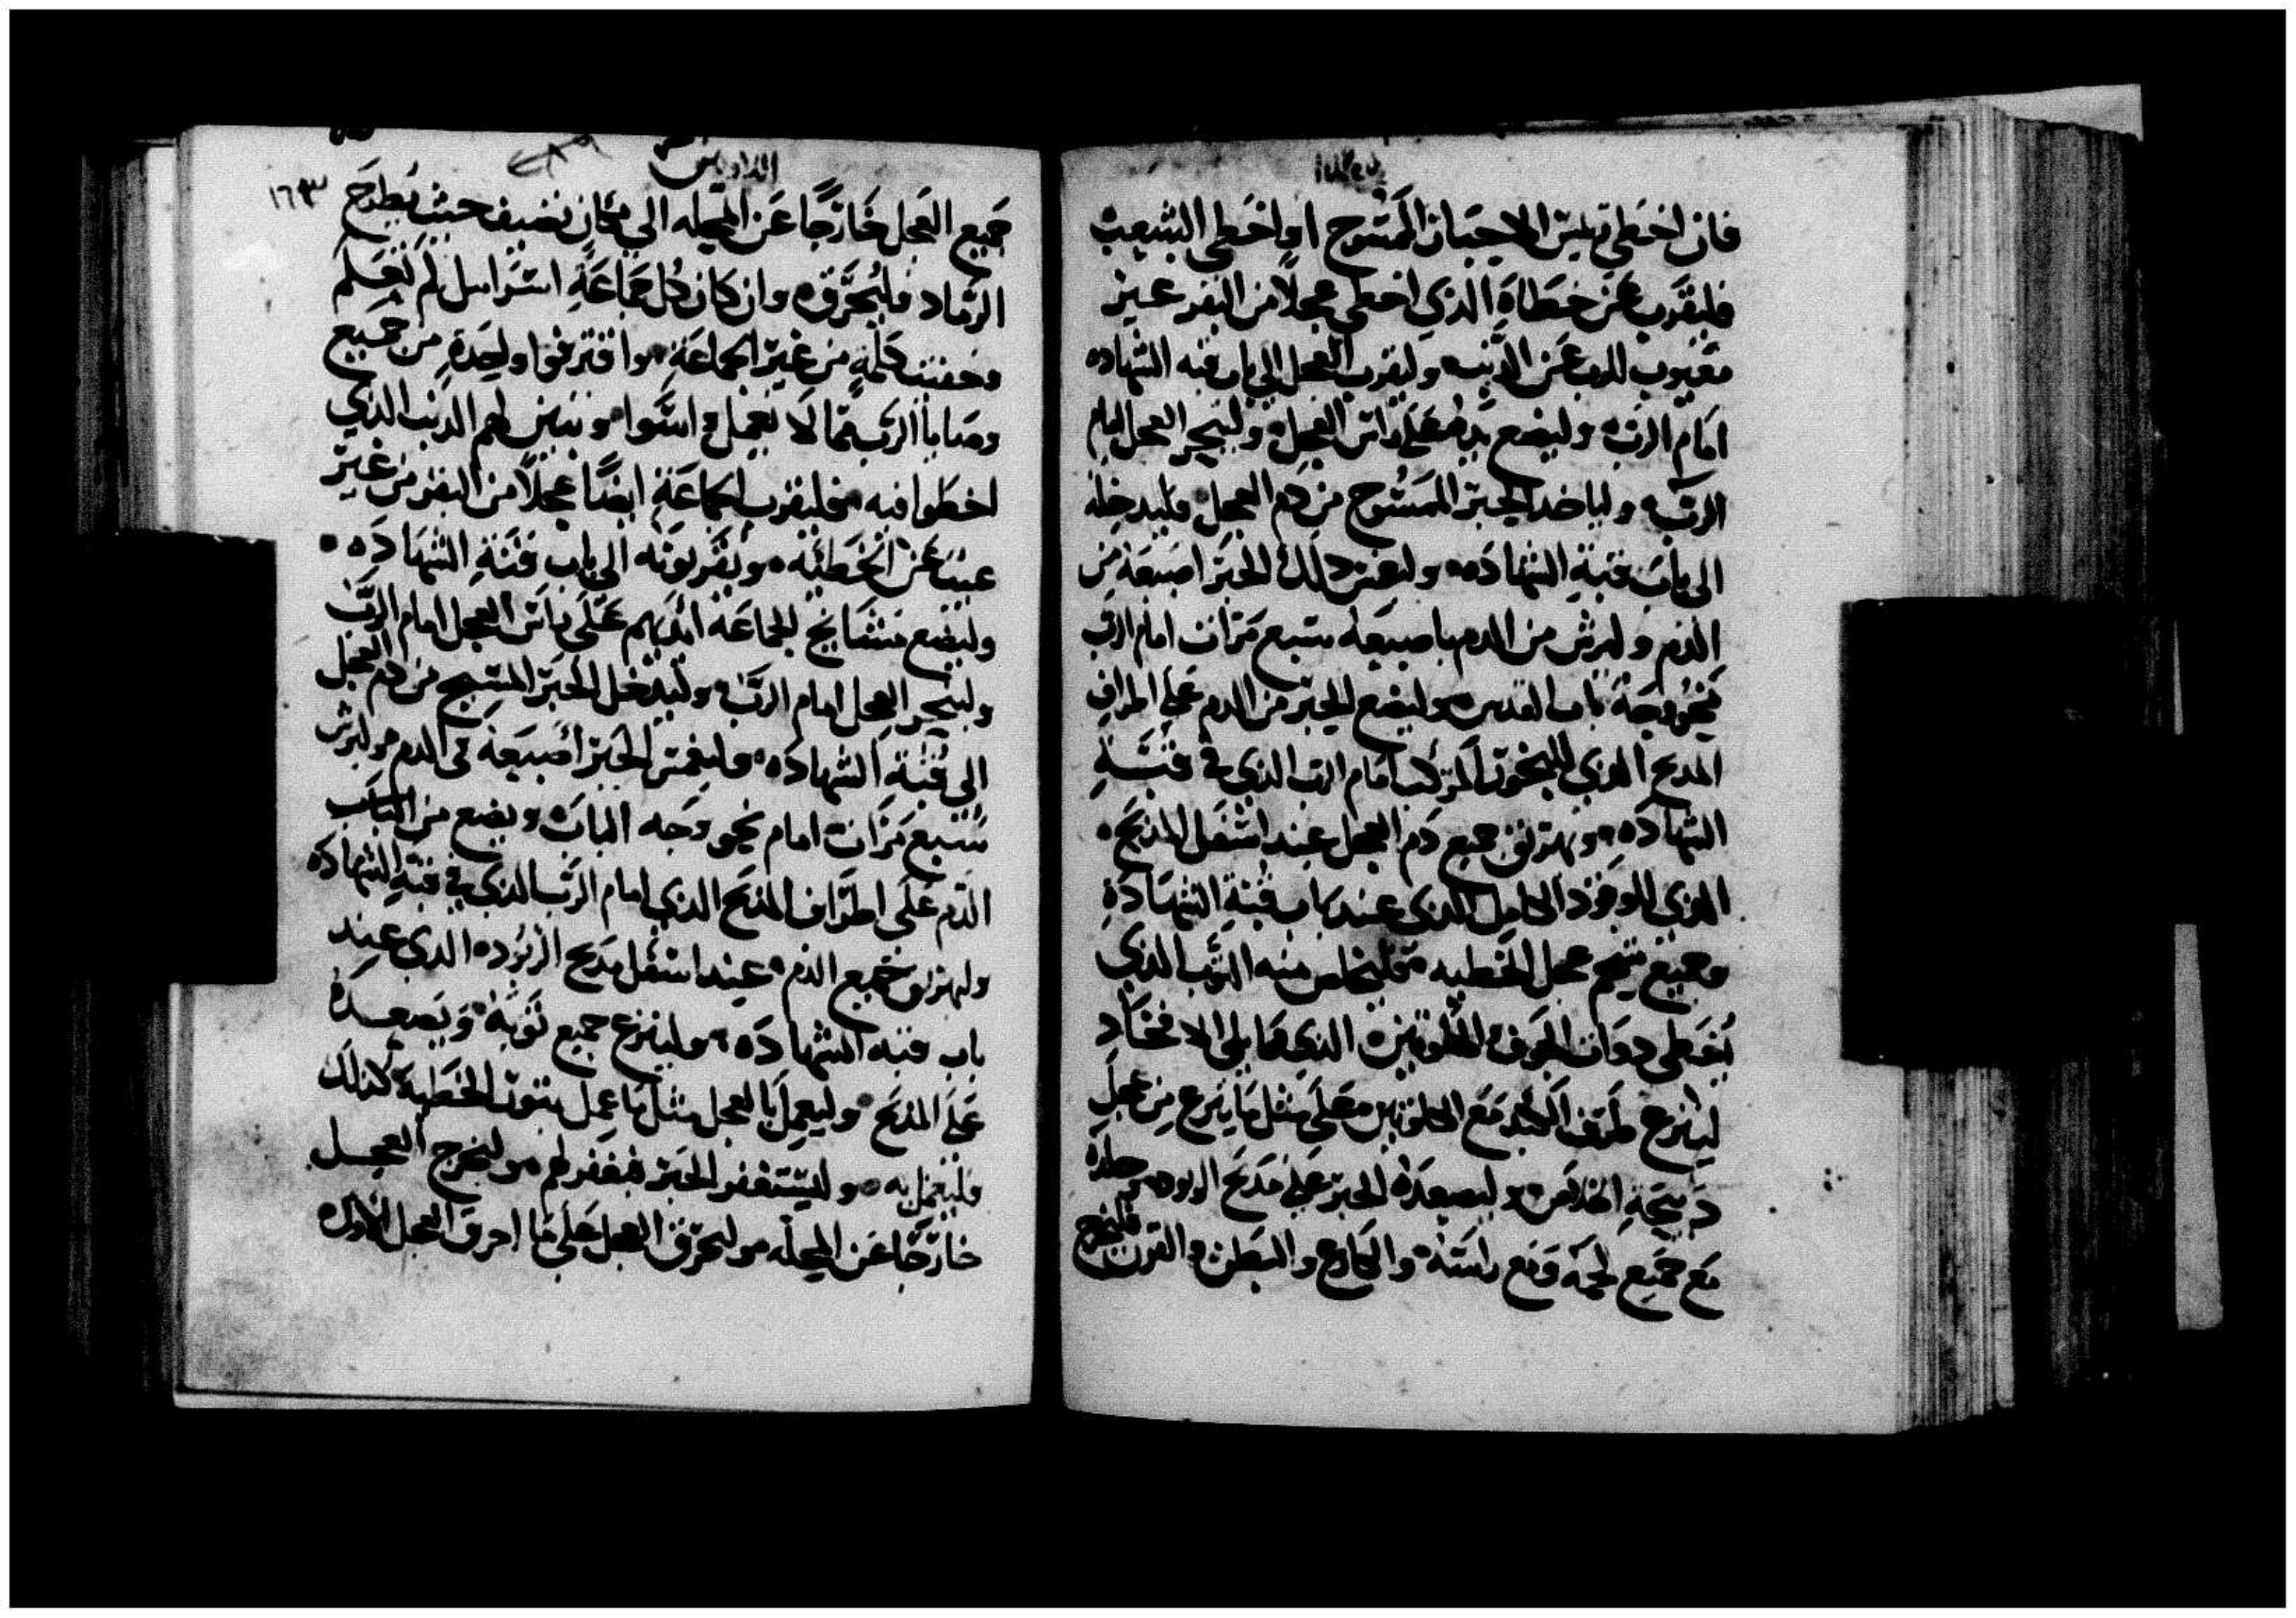 فان اخطى رييس الاحبار الممسوح او اخطى الشعب
فليقرب عن خطاه الذي اخطى عجلا من البقر غير
معيوب للرب عن الذنب وليقرب العجل الي باب قبه الشهاده
امام الرب وليضع يده على راس العجل ولينحر العجل امام
الرب ولياخد الحبر الممسوح من دم العجل فليدخله
الى باب قبة الشهاده وليغمز ذلك الحبر اصبعه من
الدم وليرش من الدم باصبعه سبع مرات امام الرب
نحو وجه باب القدس وليضع الحبر من الدم على اطراف
المدبح الذي للبخور المركب امام الرب الذي في قبة
الشهاده ويهريق جميع دم العجل عند اسفل المدبح
الذي للوقود الكامل الذي عند باب قبة الشهادة
وجميع شحم عجل الخطيه فليخلص منه الترب الذي
يغطي دوات الجوف والكلوتين الذي مما يلي الافخاد
لينزع طرف الكبد مع الكلوتين معا مثل ما ينزع من عجل
دبيحة الخلاص وليصعده الحبر على مدبح الوقود وجلده
مع جميع لحمه ومع راسه والكارع والبطن والفرت فليخرج
الداويين
٢٨٩
١٦٣
جميع العجل خارجا عن المحله الي مكان نضيف حيث يطرح
الرماد فليحرق وان كان كل جماعة اسراييل لم تعلم
وخفيت كلمة من غير الجماعة وافترفوا واحدة من جميع
وصايا الرب مما لا يعمل واسوا وتبين لهم الدنب الذي
اخطوا فيه فليقرب الجماعة ايضا عجلا من البقر من غير
عيب عن الخطيه ويقربونه الى باب قبة الشهاده
وليضع مشايخ الجماعة ايديهم على راس العجل امام الرب
ولينحر العجل امام الرب وليدخل الحبر المسيح من دم العجل
الى قبة الشهاده وليغمس الحبر اصبعه في الدم وليرش
سبع مرات امام نحو وجه الباب ويضع من
الدم على اطراف المدبح الذي امام الرب الذي في قبة الشهاده
وليهريق جميع الدم عند اسفل مدبح الوقوده الذي عند
باب قبه الشهاده ولينزع جميع ثربه ويصعده
على المدبح وليعمل بالعجل مثل ما عمل بتور الخطيه كذلك
فليعمل به وليستغفر الحبر فيغفر لهم وليخرج العجل
خارجا عن المحله وليحرق العجل على ما احرق العجل الاول